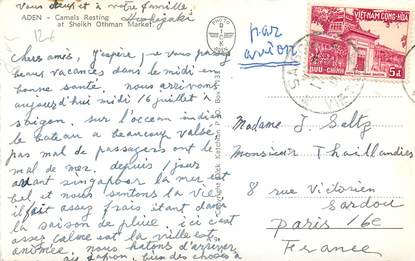 vous deux et à votre famille.
ADEN - Camels Resting
at Sheikh Othman Market.
126
PHOTO
par
avion
VIỆT-NAM CỘNG-HÒA
BƯU-CHÍNH
5đ
Copyright Dick Ketchian P.O. Box
Chers amis, j'espère que vous passez
beaux vacances dans le midi en
bonne santé. nous arrivons
aujourd'hui midi 16 juillet à
saigon. sur l'ocean indien
le bateau a beaucoup valsé
pas mal de passagers ont le
mal de mer. depuis 1 jour
avant singapour la mer est
bel et nous sentons la ville
il fait assez frais étant dans
la saison de pluie. ici c'est
assez calme sat la ville est
animée. nous hatons d'arriver
au japon, bien des choses à
Madame J. Saltz
Monsieur Thaillandier
8 rue Victorien
Sardou
Paris 16e
France